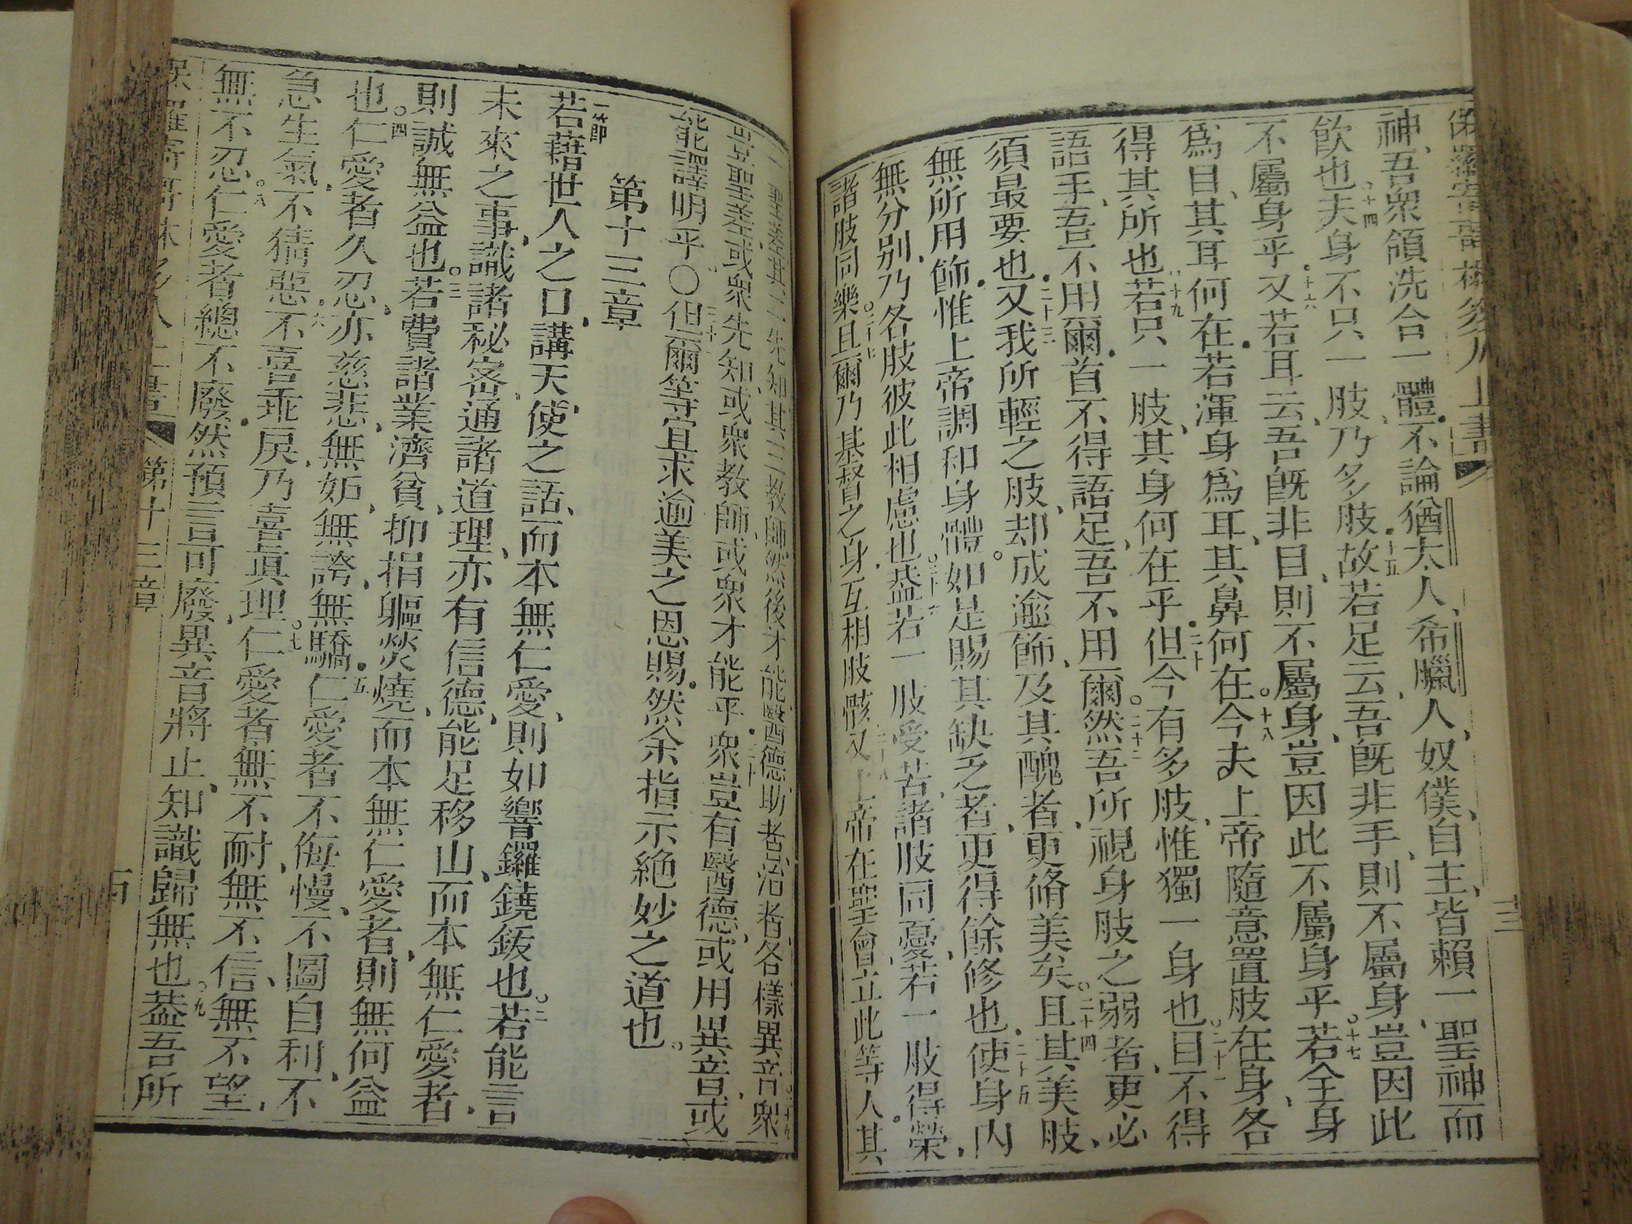 神吾衆領洗合一體不論猶太人希臘人奴僕自主皆賴一聖神而
飲也十四夫身不只一肢乃多肢十五故若足云吾旣非手則不屬身豈因此
不屬身乎十六又若耳云吾旣非目則不屬身豈因此不屬身乎十七若全身
爲目其耳何在若渾身爲耳其鼻何在十八今夫上帝隨意置肢在身各
得其所也十九若只一肢其身何在乎二十但今有多肢惟獨一身也二十一目不得
語手吾不用爾首不得語足吾不用爾二十二然吾所視身肢之弱者更必
須最要也二十三又我所輕之肢却成逾飾及其醜者更脩美矣二十四且其美肢
無所用飾惟上帝調和身體如是賜其缺乏者更得餘修也二十五使身內
無分別乃各肢彼此相慮也二十六蓋若一肢受苦諸肢同憂若一肢得榮
諸肢同樂二十七且爾乃基督之身互相肢骸二十八又上帝在聖會立此等人其
一聖差其二先知其三教師然後才能醫德助者治者各樣異音二十九衆
豈聖差或衆先知或衆教師或衆才能乎三十衆豈有醫德或用異音或
能譯明乎〇三十一但爾等宜求逾美之恩賜然余指示絶妙之道也
第十三章
一節若藉世人之口講天使之話而本無仁愛則如響鑼鐃鈸也二若能言
未來之事識諸秘密通諸道理亦有信德能足移山而本無仁愛者
則誠無益也三若費諸業濟貧抑捐軀焚燒而本無仁愛者則無何益
也四仁愛者久忍亦慈悲無妬無誇無驕五仁愛者不侮慢不圖自利不
急生氣不猜惡六不喜乖戾乃喜眞理七仁愛者無不耐無不信無不望
無不忍八仁愛者總不廢然預言可廢異音將止知識歸無也九蓋吾所
第十三章